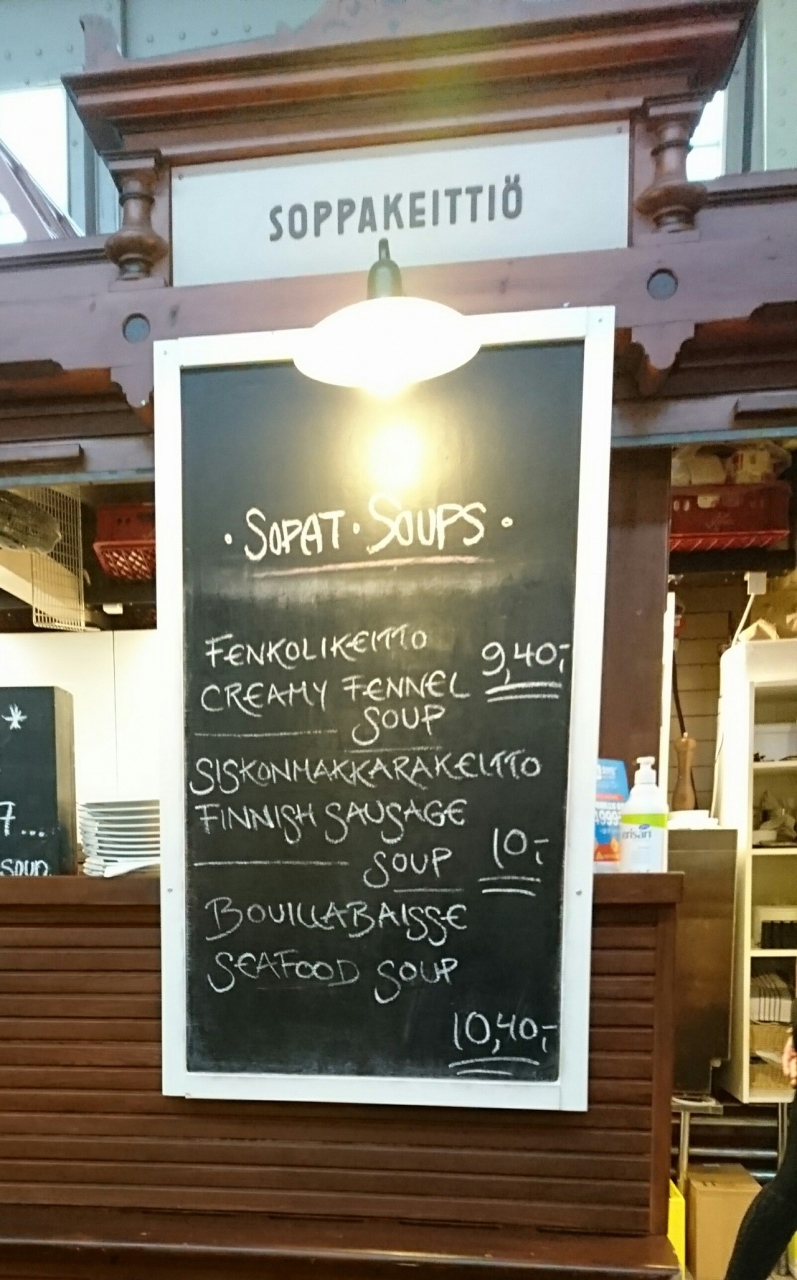 SOPPAKEITTIÖ
· SOPAT · SOUPS ·
FENKOLIKEITTO
9,40;-
CREAMY FENNEL
SOUP
SISKONMAKKARAKEITTO
FINNISH SAUSAGE
SOUP 10;-
BOUILLABAISSE
SEAFOOD SOUP
10,40;-
7...
SOUP
erisan